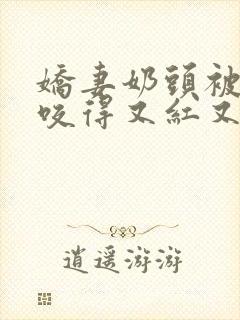 嬌妻奶頭被
咬得又紅又
逍遥游游